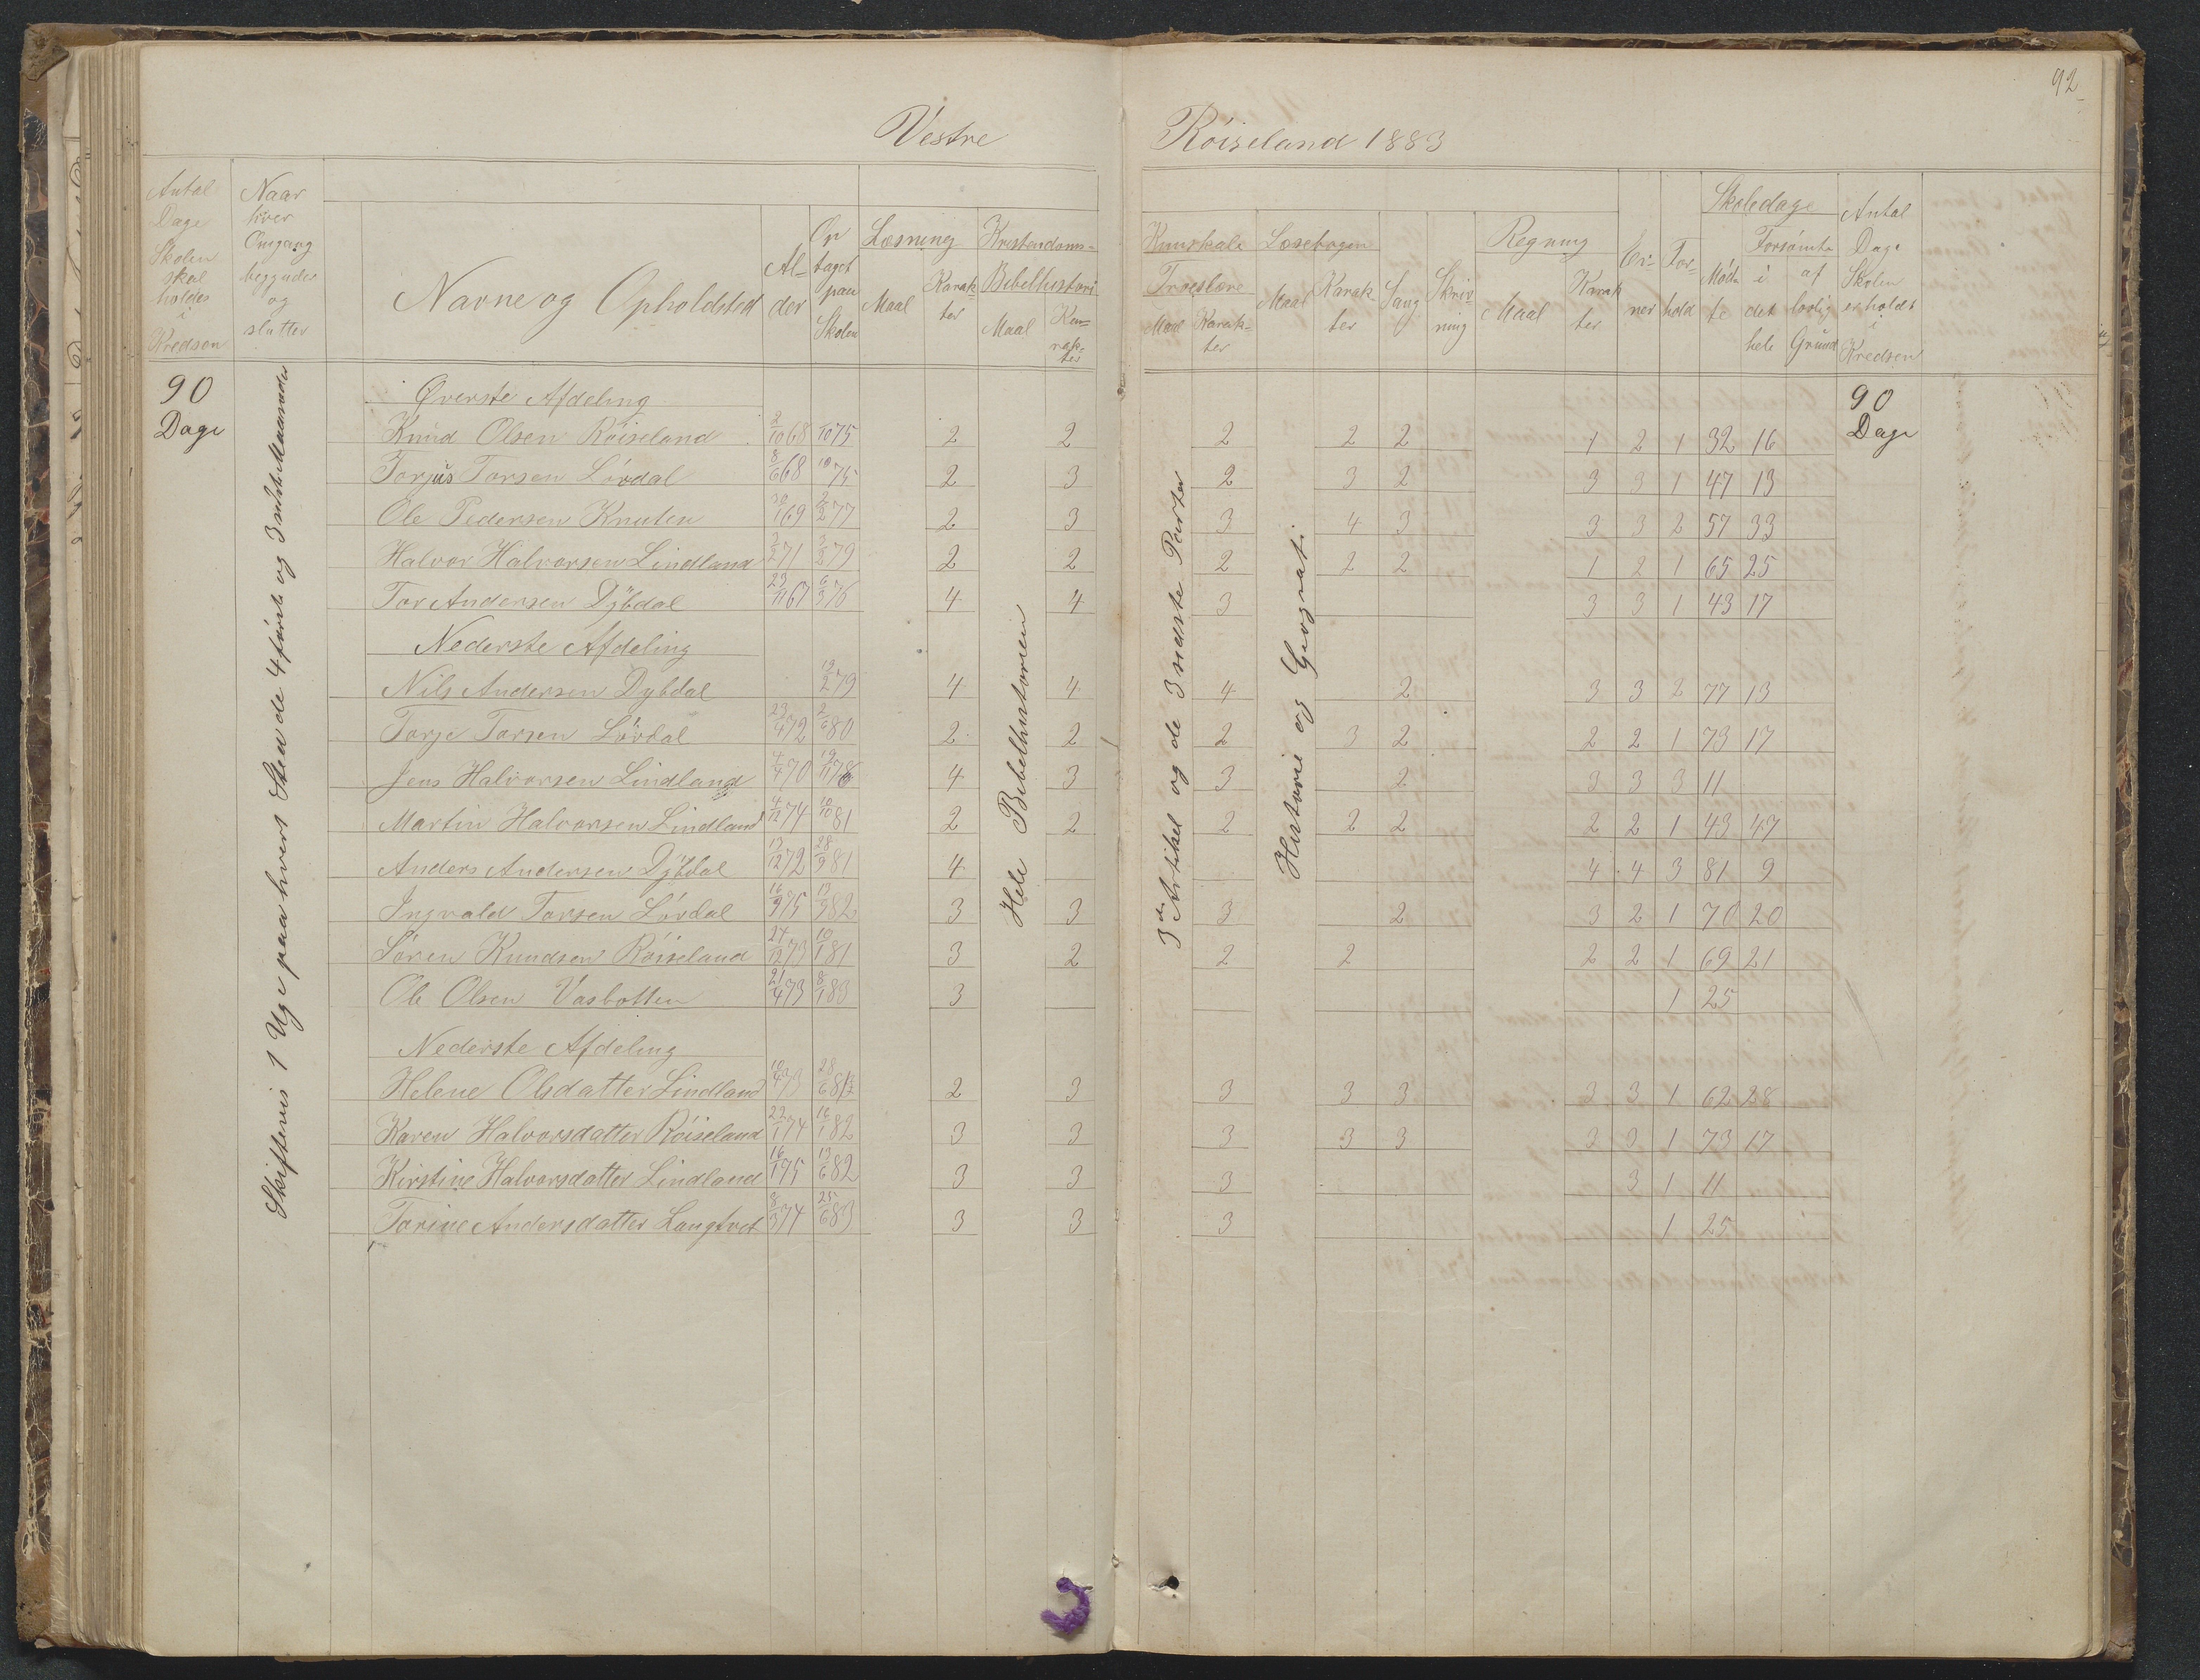 92
Vestre Röiseland 1883
Antal Dage Skolen skal holdes i Kredsen
Naar hver Omgang begynder og slutter
Navne og Opholdsted
Alder
Optaget paa Skolen
Læsning
Maal
Karakter
Kristendoms-
Bibelhistori
Maal
Karakter
Kunskab
Troeslære
Maal
Karakter
Læsebogen
Maal
Karakter
Sang
Skrivning
Regning
Maal
Karakter
Evner
Forhold
Skoledage
Mødte
Forsömte
i det hele
af lovlig Grund
Antal Dage Skolen er holdt i Kredsen
90 Dage
Skiftevis 1 Uge paa hvert Sted de 4 förste og 3 sidste Maaneder
Hele Bibelhistorien
3die Artikel og de 3 næste Parter
Historie og Geografi
90 Dage
Øverste Afdeling
Knud Olsen Röiseland 2/10 68 10 75 2 2 2 2 2 1 2 1 32 16
Torjus Torsen Lövdal 8/6 68 10 75 2 3 2 3 2 3 3 1 47 13
Ole Pedersen Knuten 30/1 69 2/2 77 2 3 3 4 3 3 3 2 57 33
Halvor Halvorsen Lindland 3/2 71 3/2 79 2 2 2 2 2 1 2 1 65 25
Tor Andersen Dÿbdal 23/11 67 6/3 76 4 4 3 3 3 1 43 17
Nederste Afdeling
Nils Andersen Dybdal 13/2 79 4 4 4 2 3 3 2 77 13
Torje Torsen Lövdal 23/4 72 2/6 80 2 2 2 3 2 2 2 1 73 17
Jens Halvorsen Lindland 4/4 70 19/11 78 4 3 3 2 3 3 3 11
Martin Halvorsen Lindland 4/12 74 10/10 81 2 2 2 2 2 2 2 1 43 47
Anders Andersen Dÿbdal 13/12 72 28/9 81 4 4 4 3 81 9
Ingvald Torsen Lövdal 16/9 75 13/9 82 3 3 3 2 3 2 1 70 20
Sören Knudsen Röiseland 24/12 73 19/1 81 3 2 2 2 2 2 1 69 21
Ole Olsen Vasbotten 21/4 73 8/1 83 3 1 25
Nederste Afdeling
Helene Olsdatter Lindland 10/4 73 28/6 81 2 3 3 3 3 3 3 1 62 28
Karen Halvorsdatter Röiseland 22/1 74 16/1 82 3 3 3 3 3 3 3 1 73 17
Kirstine Halvorsdatter Lindland 16/1 75 13/6 82 3 3 3 3 1 11
Torine Andersdatter Langtvet 8/3 74 25/6 83 3 3 3 1 25